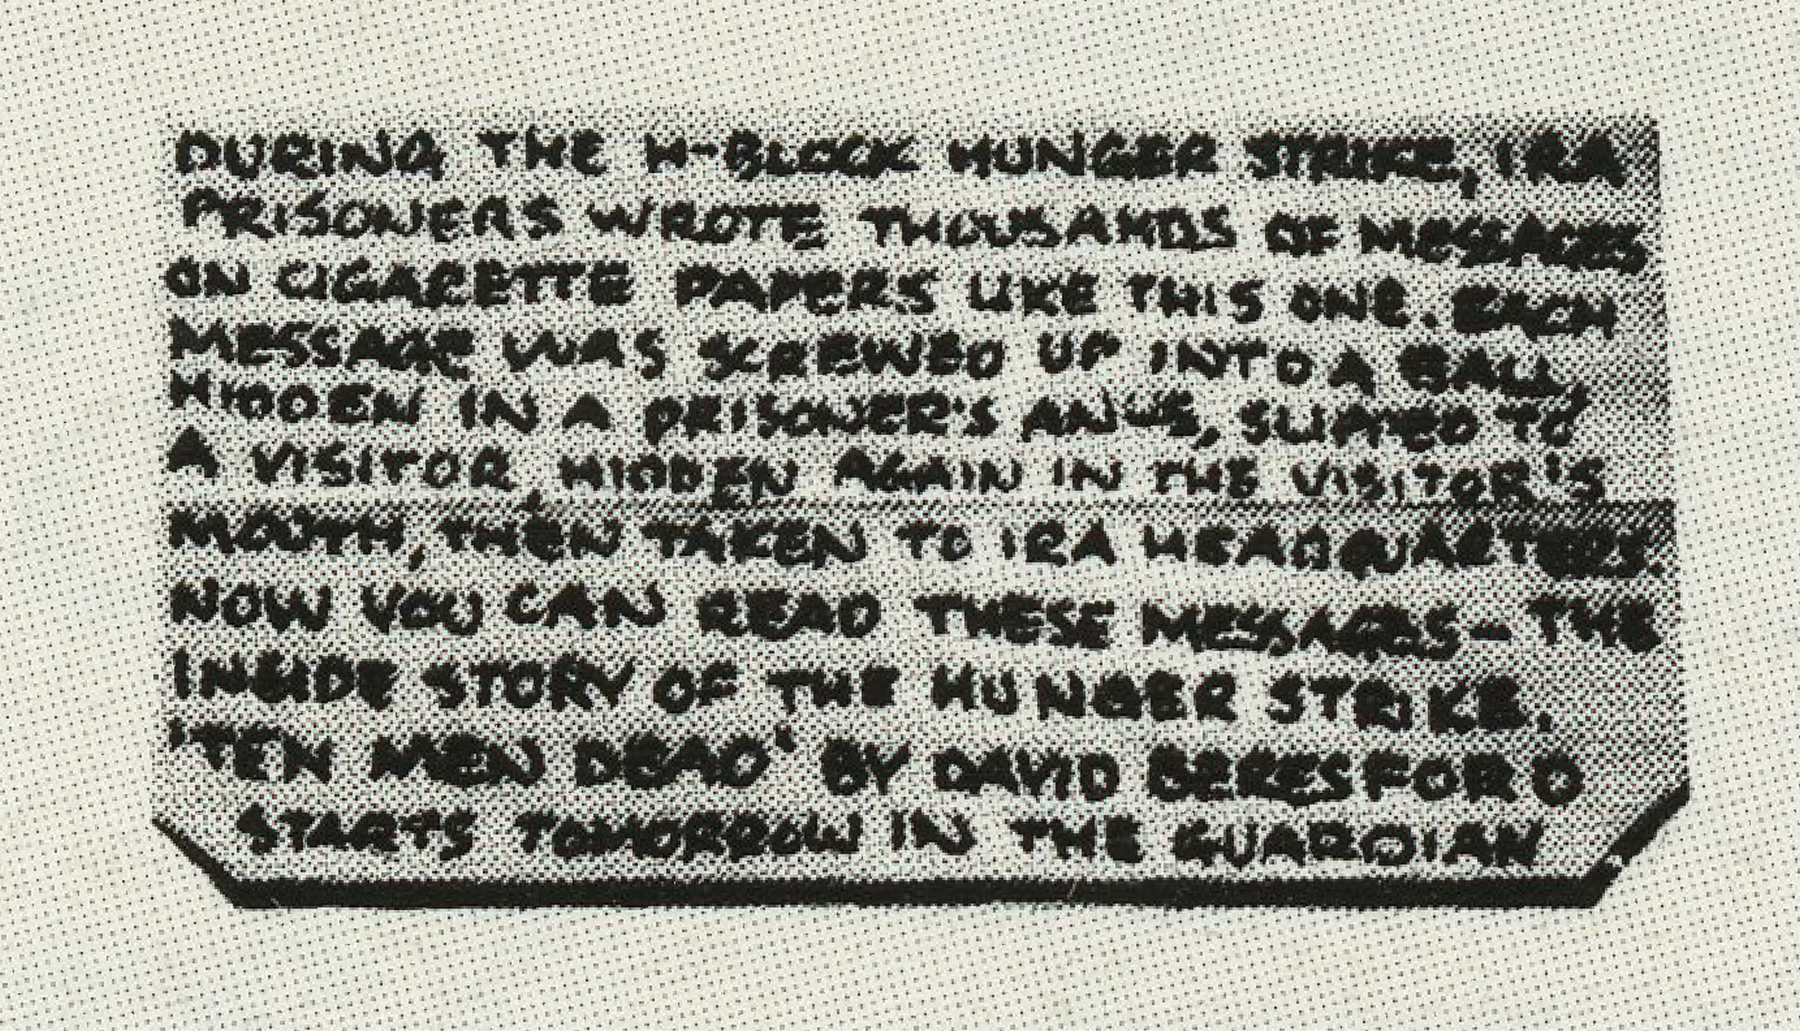 DURING THE H-BLOCK HUNGER STRIKE, IRA
PRISONERS WROTE THOUSANDS OF MESSAGES
ON CIGARETTE PAPERS LIKE THIS ONE. EACH
MESSAGE WAS SCREWED UP INTO A BALL,
HIDDEN IN A PRISONER'S ANUS, SLIPPED TO
A VISITOR, HIDDEN AGAIN IN THE VISITOR'S
MOUTH, THEN TAKEN TO IRA HEADQUARTERS.
NOW YOU CAN READ THESE MESSAGES - THE
INSIDE STORY OF THE HUNGER STRIKE.
'TEN MEN DEAD' BY DAVID BERESFORD
STARTS TOMORROW IN THE GUARDIAN